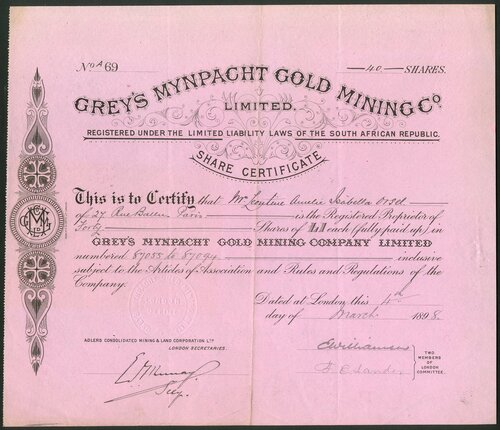 No. A 69
40 SHARES.
GREY'S MYNPACHT GOLD MINING Co.
LIMITED.
REGISTERED UNDER THE LIMITED LIABILITY LAWS OF THE SOUTH AFRICAN REPUBLIC.
SHARE CERTIFICATE
This is to Certify that Amelie Isabella
of 27 Rue Paris is the Registered Proprietor of
Forty Shares of £1 each (fully paid up) in
GREY'S MYNPACHT GOLD MINING COMPANY LIMITED
numbered 87055 to 87094 inclusive
subject to the Articles of Association and Rules and Regulations of the
Company.
Dated at London this 4th
day of March 1898.
ADLERS CONSOLIDATED MINING & LAND CORPORATION LTD
LONDON SECRETARIES.
Secy.
TWO
MEMBERS
OF
LONDON
COMMITTEE.